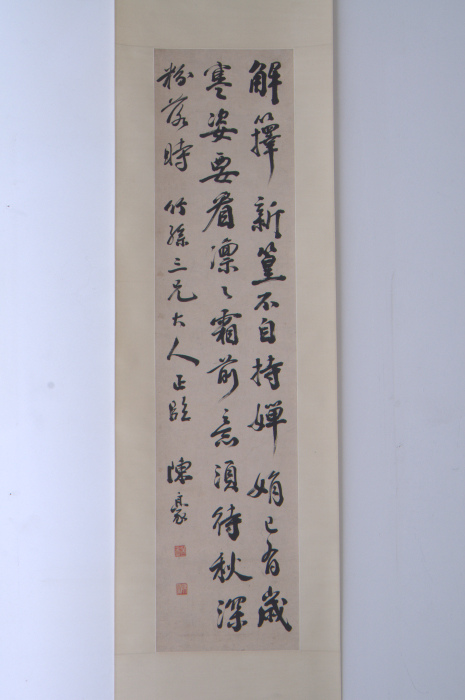 解籜新篁不自持嬋娟已有歲
寒姿要看凜〻霜前意須待秋深
粉落時 竹孫三兄大人正題 陳豪